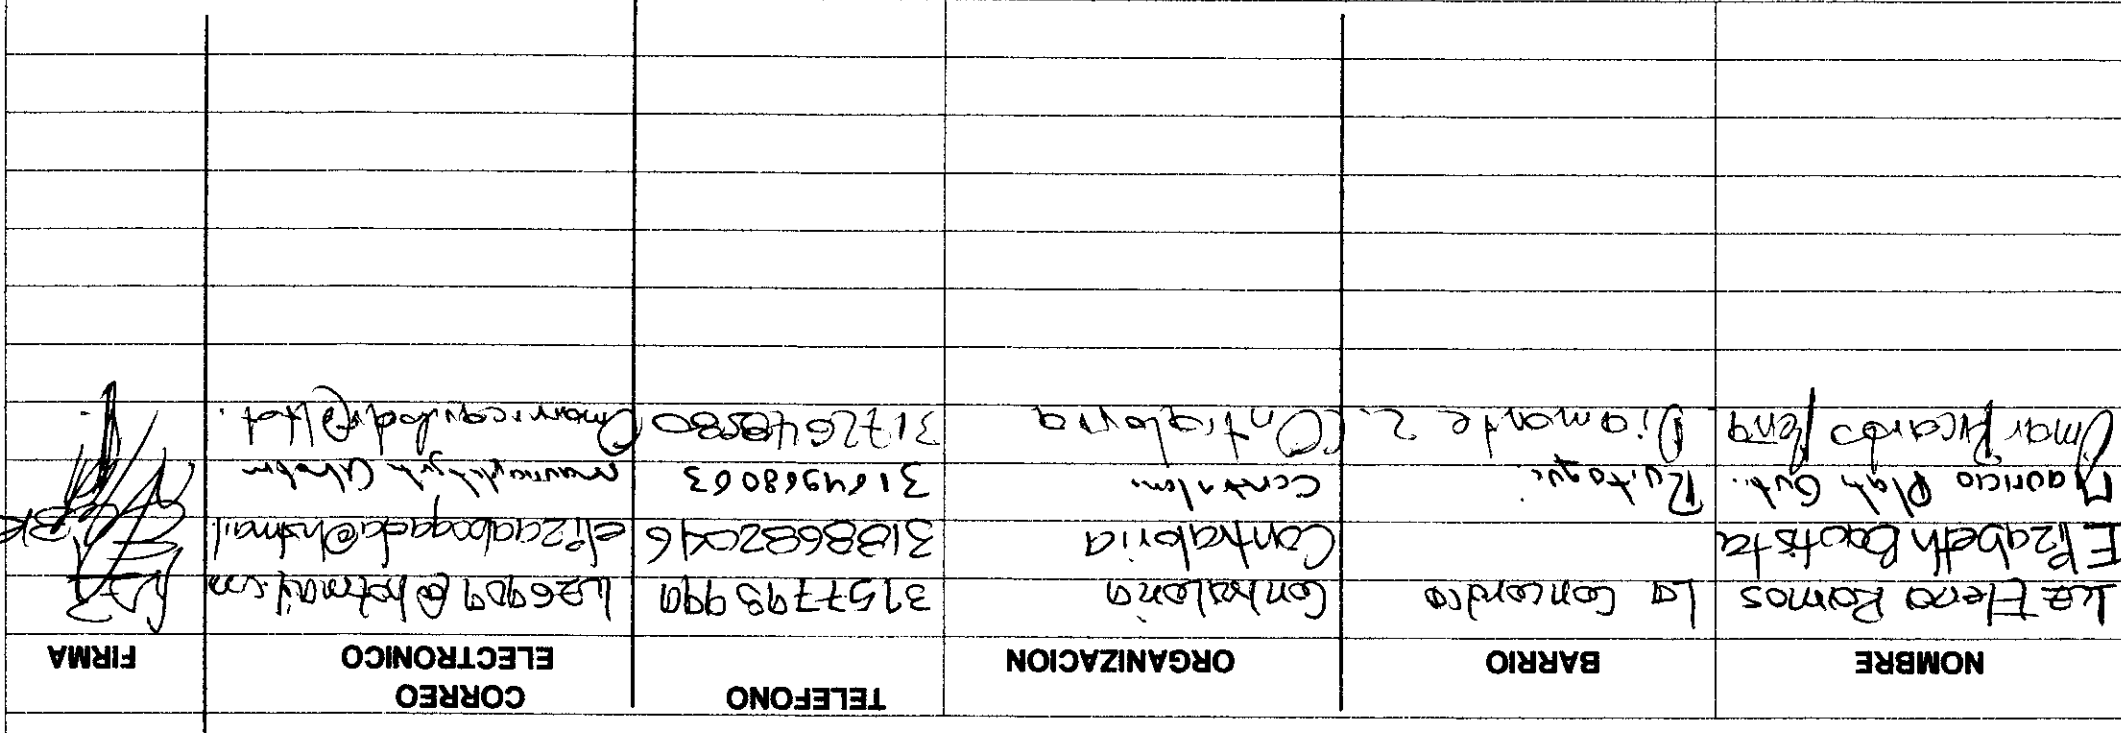 NOMBRE BARRIO ORGANIZACION TELEFONO CORREO ELECTRONICO FIRMA
Luz Elena Ramos La Concordia Contraloria 3157793999 luz6909@hotmail.com
Elizabeth Bautista Contraloria 3188682046 elizaabogada@hotmail
Mauricio Plata Gut. Ruitoque. 3164968063
Omar Ricardo Peña Diamante 2. Contraloria